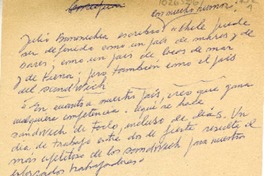 con mucho humor:
Julio Barrenechea escribió "Chile puede
ser definido como un país de muros y de
como un país de locos de mar
y de tierra; pero también como el país
del sandwich
En cuanto a nuestro país, creo que gana
cualquiera competencia. Aquí se hace
sandwich de todo, incluso de días. Un
día de trabajo entre dos de fiesta resulta el
más apetitoso de los sandwich para nuestros
trabajadores"